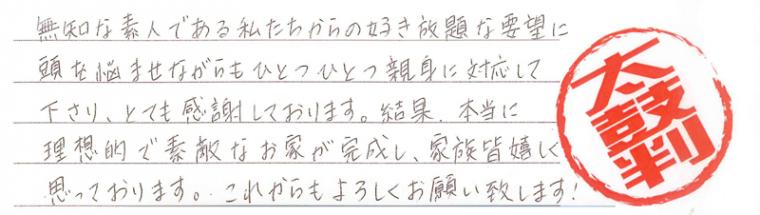 無知な素人である私たちからの好き放題な要望に
頭を悩ませながらもひとつひとつ親身に対応して
下さり、とても感謝しております。結果、本当に
理想的で素敵なお家が完成し、家族皆嬉しく
思っております。これからもよろしくお願い致します!
太鼓判